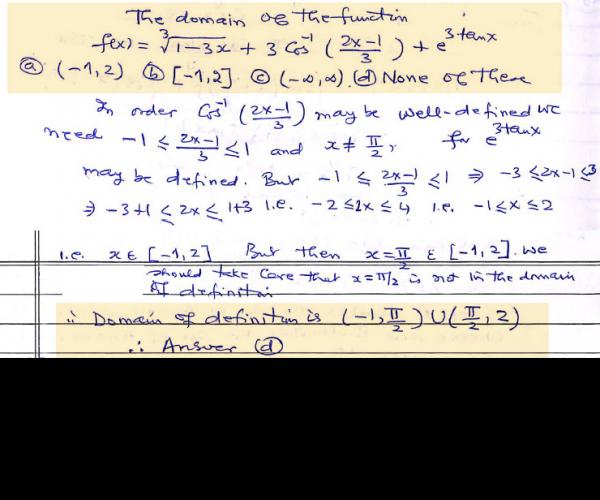 The domain of the function
f(x) = ∛(1-3x) + 3 Cos⁻¹ ((2x-1)/3) + e^(3tanx)
ⓐ (-1,2) ⓑ [-1,2] ⓒ (-∞,∞) ⓓ None of these
In order Cos⁻¹ ((2x-1)/3) may be well-defined we
need -1 ≤ (2x-1)/3 ≤ 1 and x ≠ π/2, for e^(3tanx)
may be defined. But -1 ≤ (2x-1)/3 ≤ 1 ⇒ -3 ≤ 2x-1 ≤ 3
⇒ -3+1 ≤ 2x ≤ 1+3 i.e. -2 ≤ 2x ≤ 4 i.e. -1 ≤ x ≤ 2
i.e. x ∈ [-1,2] But then x = π/2 ∈ [-1,2]. We
should take care that x = π/2 is not in the domain
of definition
∴ Domain of definition is (-1, π/2) ∪ (π/2, 2)
∴ Answer ⓓ